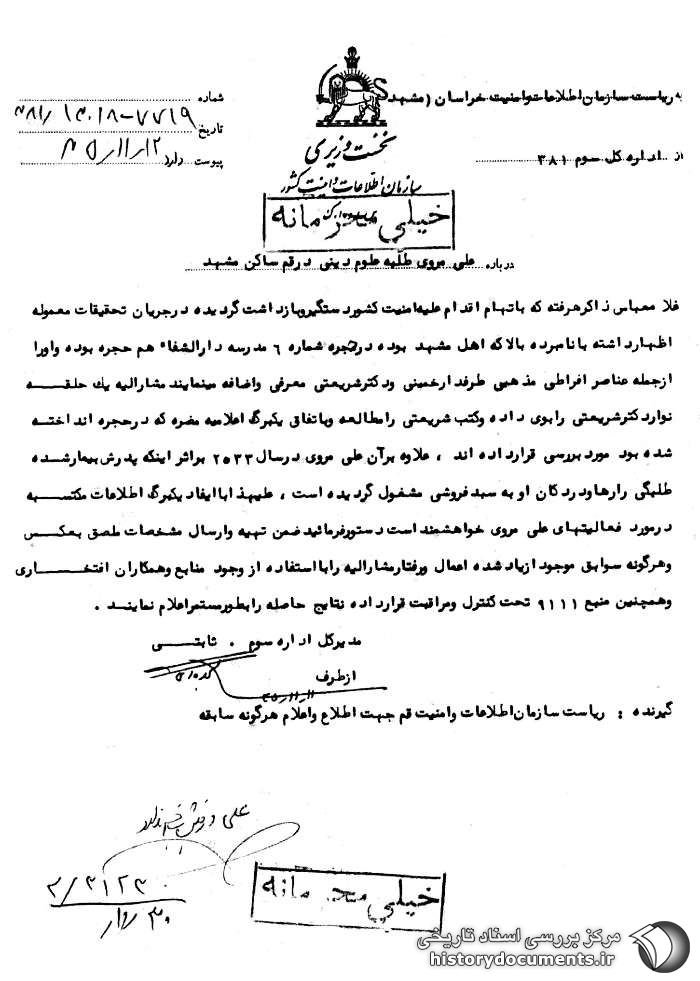 به ریاست سازمان اطلاعات وامنیت خراسان (مشهد)
از اداره کل سوم ۳۸۱
نخست وزیری
سازمان اطلاعات و امنیت کشور
شماره
تاریخ
پیوست دارد
خیلی محرمانه
درباره علی مروی طلبه علوم دینی درقم ساکن مشهد
غلا معباس ذاکرهرفته که باتهام اقدام علیه امنیت کشور دستگیروبازداشت گردیده درجریان تحقیقات معموله
اظهارداشته بانامبرده بالاکه اهل مشهد بوده درحجره شماره ۶ مدرسه دارالشفاء هم حجره بوده واورا
ازجمله عناصر افراطی مذهبی طرفدارخمینی ودکترشریعتی معرفی واضافه مینمایند مشارالیه یك حلقه
نواردکترشریعتی رابوی داده وکتب شریعتی رامطالعه وباتفاق یکبرگ اعلامیه مضره که درحجره انداخته
شده بود موردبررسی قرارداده اند ، علاوه برآن علی مروی درسال ۲۵۳۳ براثر اینکه پدرش بیمارشده
طلبگی رارهاودردکان او به سبدفروشی مشغول گردیده است ، علیهذاباایفاد یکبرگ اطلاعات مکتسبه
درمورد فعالیتهای علی مروی خواهشمند است دستورفرمائید ضمن تهیه وارسال مشخصات ملصق بعکس
وهرگونه سوابق موجود ازیادشده اعمال ورفتارمشارالیه رابااستفاده از وجود منابع وهمکاران افتخاری
وهمچنین منبع ۹۱۱۱ تحت کنترل ومراقبت قرارداده نتایج حاصله رابطورمستمراعلام نمایند .
مدیرکل اداره سوم . ثابتی
ازطرف
گیرنده : ریاست سازمان اطلاعات وامنیت قم جهت اطلاع واعلام هرگونه سابقه
خیلی محرمانه
مرکز بررسی اسناد تاریخی
historydocuments.ir